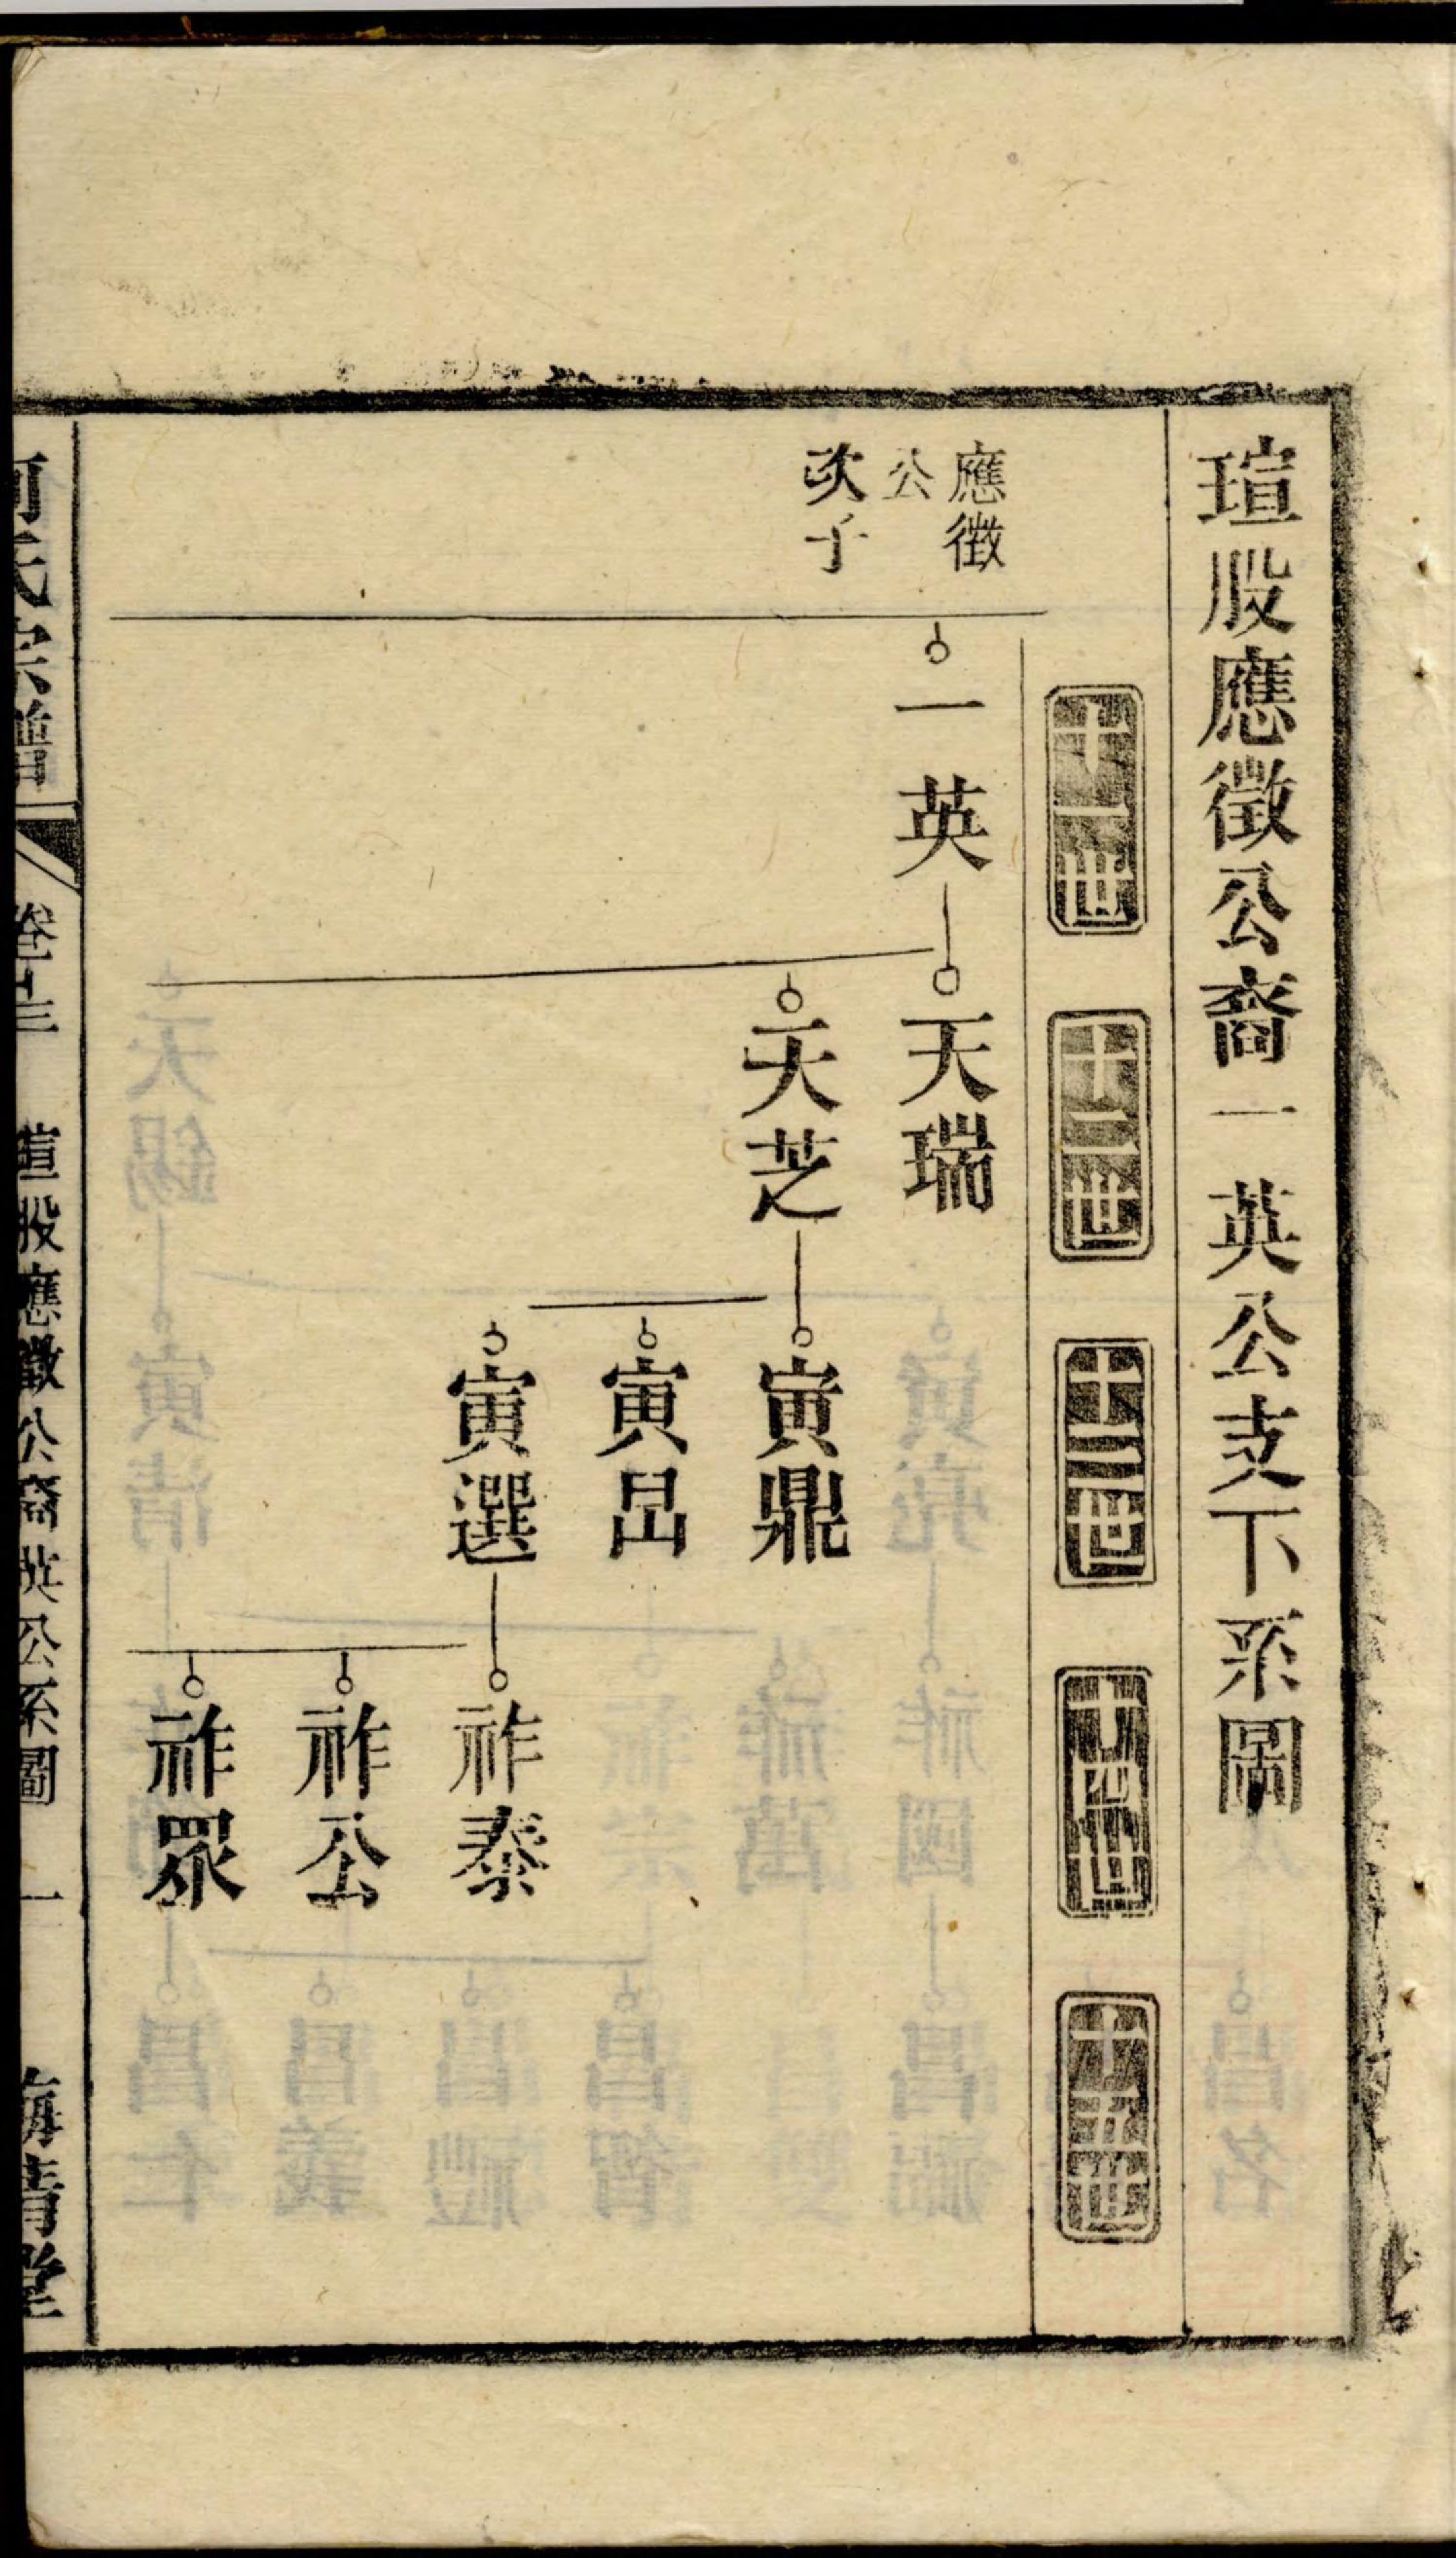 瑄股應徵公裔一英公支下系圖
十一世
十二世
十三世
十四世
十五世
應徵
公
次子
一英
天瑞
天芝
寅鼎
寅昷
寅選
祚泰
祚公
祚眾
何氏宗譜
卷十三
瑄股應徵公裔英公系圖
一